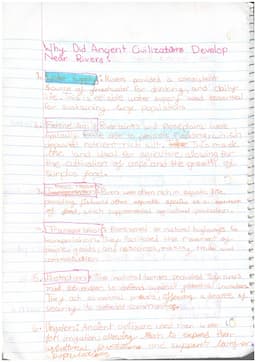 Why Did Ancient Civilizations Develop
Near Rivers?
1. Water supply: Rivers provided a consistent
source of freshwater for drinking, and daily
life. This reliable water supply was essential
for sustaining large populations
2. Fertile Soil: River banks and floodplains were
deposited nutrient rich silt. This made
the land ideal for agriculture, allowing for
the cultivation of crops and the growth of
surplus food.
3. Rivers were often rich in aquatic life,
providing fish and other aquatic species as a source
of food, which supplemented agricultural production.
4. Transportation: Rivers served as natural highways for
transportation. They facilitated the movement of
people, goods, and resources, making trade and
communication
5. Protection: The natural barriers provided by rivers
made it to defend against potential invaders.
They act as natural, offering a degree of
security to
6. Irrigation: Ancient civilizations used river water
for irrigation, allowing them to expand their
agricultural and support larger
populations.